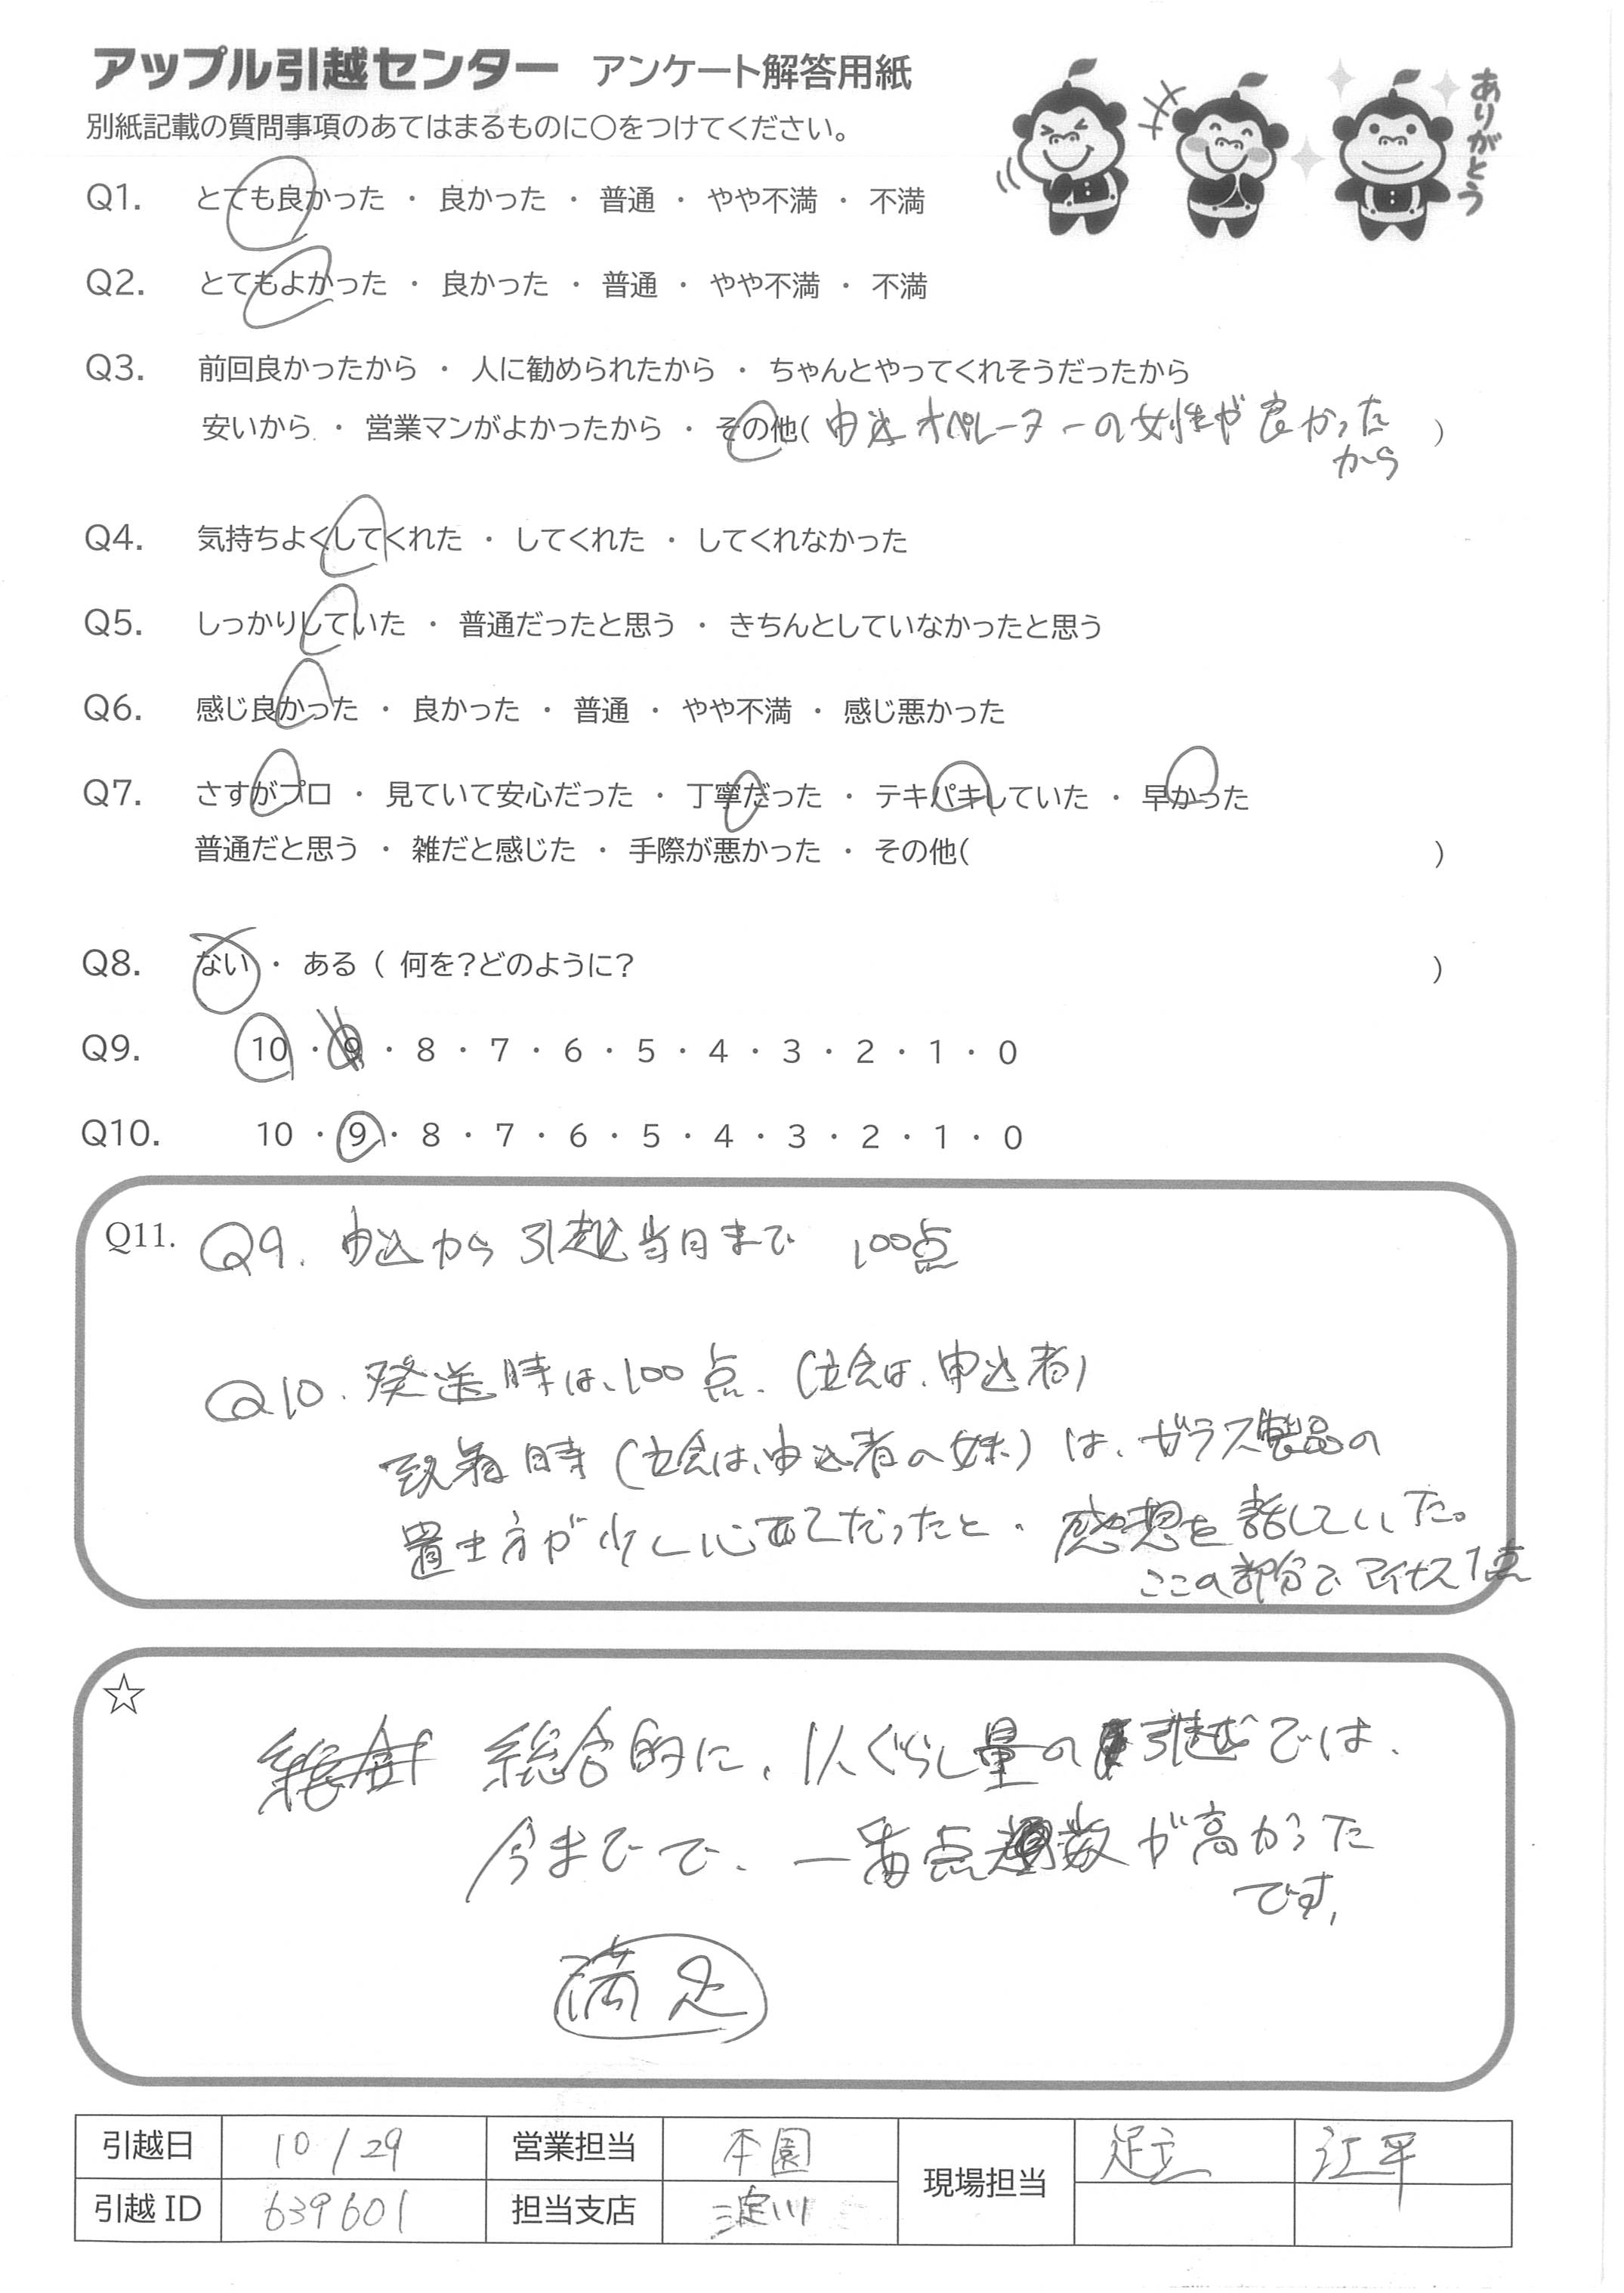 アップル引越センター アンケート解答用紙
別紙記載の質問事項のあてはまるものに○をつけてください。
ありがとう
Q1. とても良かった ・ 良かった ・ 普通 ・ やや不満 ・ 不満
Q2. とてもよかった ・ 良かった ・ 普通 ・ やや不満 ・ 不満
Q3. 前回良かったから ・ 人に勧められたから ・ ちゃんとやってくれそうだったから
安いから ・ 営業マンがよかったから ・ その他( 申込オペレーターの女性が良かった )
から
Q4. 気持ちよくしてくれた ・ してくれた ・ してくれなかった
Q5. しっかりしていた ・ 普通だったと思う ・ きちんとしていなかったと思う
Q6. 感じ良かった ・ 良かった ・ 普通 ・ やや不満 ・ 感じ悪かった
Q7. さすがプロ ・ 見ていて安心だった ・ 丁寧だった ・ テキパキしていた ・ 早かった
普通だと思う ・ 雑だと感じた ・ 手際が悪かった ・ その他( )
Q8. ない ・ ある ( 何を?どのように? )
Q9. 10 ・ 9 ・ 8 ・ 7 ・ 6 ・ 5 ・ 4 ・ 3 ・ 2 ・ 1 ・ 0
Q10. 10 ・ 9 ・ 8 ・ 7 ・ 6 ・ 5 ・ 4 ・ 3 ・ 2 ・ 1 ・ 0
Q11. Q9. 申込から引越当日まで 100点
Q10. 発送時は、100点、(立会は、申込者)
到着時(立会は、申込者の妹)は、ガラス製品の
置き方が少し心配だったと、感想を話していした。
ここの部分でマイナス1点
☆
総合的に、1人ぐらし量の引越では、
今までで、一番点数が高かった
です。
満足
引越日 10/29 営業担当 本園 現場担当 足立 江平
引越ID 639601 担当支店 淀川